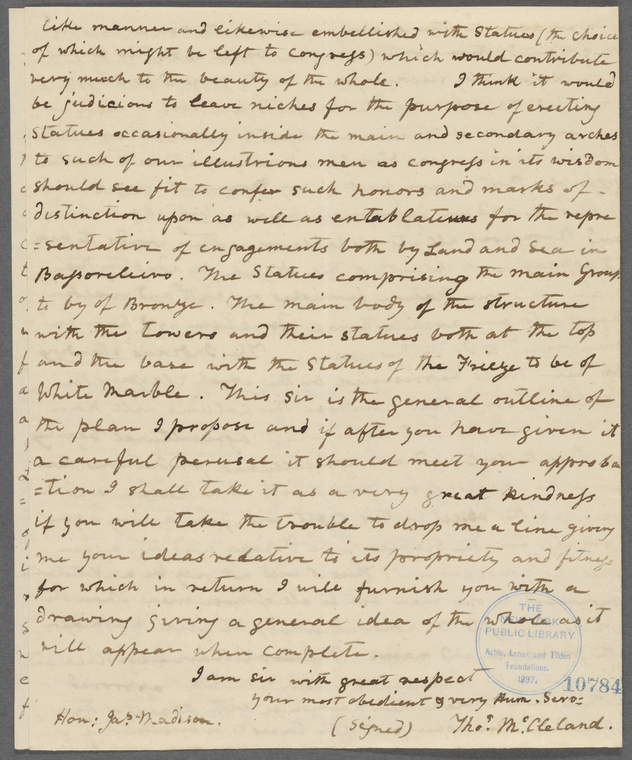 like manner and likewise embellished with Statues (the choice
of which might be left to Congress) which would contribute
very much to the beauty of the whole. I think it would
be judicious to leave niches for the purpose of erecting
Statues occasionally inside the main and secondary arches
to such of our illustrious men as congress in its wisdom
should see fit to confer such honors and marks of -
distinction upon as well as entablatures for the repre
=sentative of engagements both by Land and Sea in
Bassorelievo. The Statues comprising the main Group
to by of Bronze. The main body of the structure
with the towers and their statues both at the top
and the base with the Statues of the Frieze to be of
White Marble. This Sir is the general outline of
the plan I propose and if after you have given it
a careful perusal it should meet your approba
=tion I shall take it as a very great kindness
if you will take the trouble to drop me a line giving
me your ideas relative to its propriety and fitness
for which in return I will furnish you with a
drawing giving a general idea of the whole as it
will appear when complete.
I am Sir with great respect
your most obedient & very Hum. Serv:
Hon: Jas. Madison. (Signed) Thos. McCleland.
THE
NEW YORK
PUBLIC LIBRARY
Astor, Lenox and Tilden
Foundations.
1897.
10784